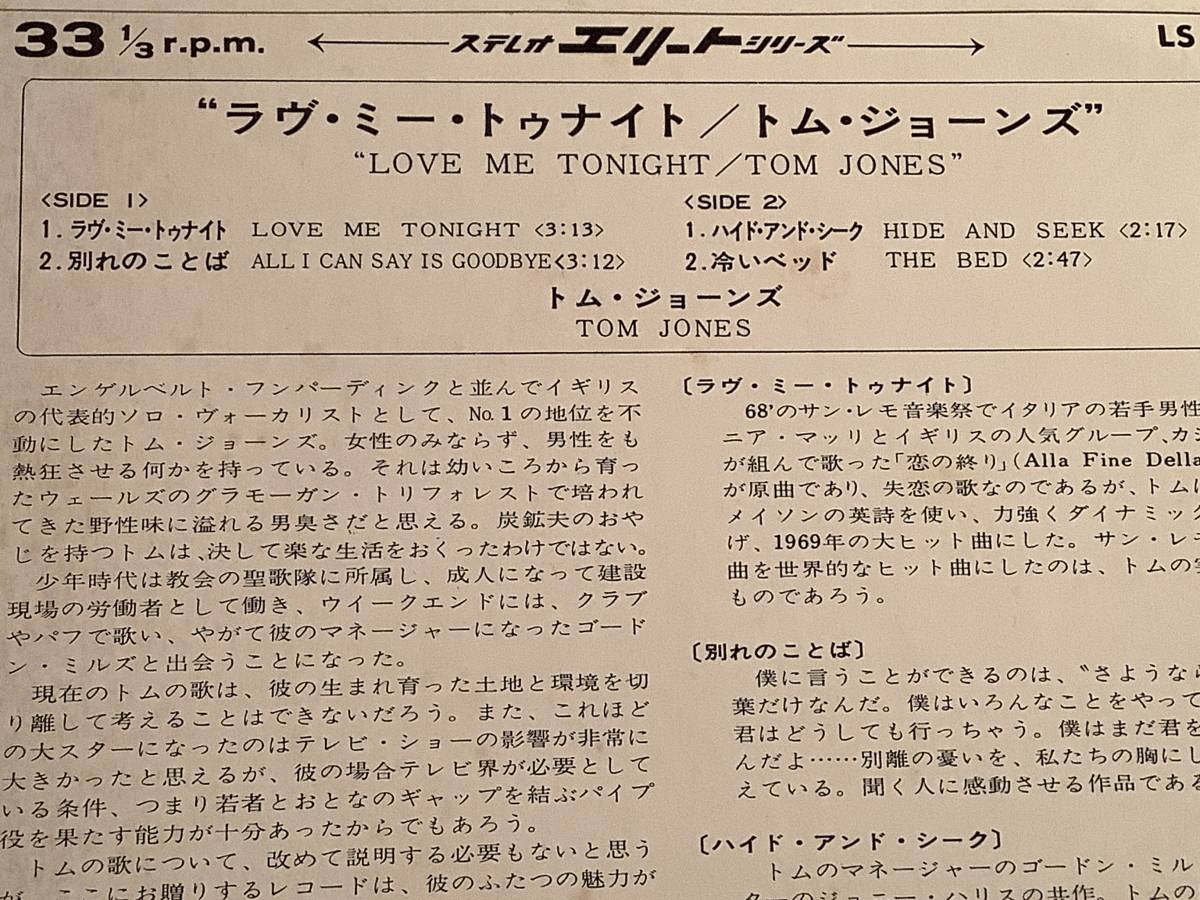 33 1/3 r.p.m. ←ステレオ エリート シリーズ→ LS
“ラヴ・ミー・トゥナイト／トム・ジョーンズ”
“LOVE ME TONIGHT／TOM JONES”
〈SIDE 1〉
1. ラヴ・ミー・トゥナイト LOVE ME TONIGHT 〈3:13〉
2. 別れのことば ALL I CAN SAY IS GOODBYE〈3:12〉
〈SIDE 2〉
1. ハイド・アンド・シーク HIDE AND SEEK 〈2:17〉
2. 冷いベッド THE BED 〈2:47〉
トム・ジョーンズ
TOM JONES
エンゲルベルト・フンパーディンクと並んでイギリス
の代表的ソロ・ヴォーカリストとして、No.1の地位を不
動にしたトム・ジョーンズ。女性のみならず、男性をも
熱狂させる何かを持っている。それは幼いころから育っ
たウェールズのグラモーガン・トリフォレストで培われ
てきた野性味に溢れる男臭さだと思える。炭鉱夫のおや
じを持つトムは、決して楽な生活をおくったわけではない。
少年時代は教会の聖歌隊に所属し、成人になって建設
現場の労働者として働き、ウイークエンドには、クラブ
やパフで歌い、やがて彼のマネージャーになったゴード
ン・ミルズと出会うことになった。
現在のトムの歌は、彼の生まれ育った土地と環境を切
り離して考えることはできないだろう。また、これほど
の大スターになったのはテレビ・ショーの影響が非常に
大きかったと思えるが、彼の場合テレビ界が必要として
いる条件、つまり若者とおとなのギャップを結ぶパイプ
役を果たす能力が十分あったからでもあろう。
トムの歌について、改めて説明する必要もないと思う
が、ここにお贈りするレコードは、彼のふたつの魅力が
〔ラヴ・ミー・トゥナイト〕
68'のサン・レモ音楽祭でイタリアの若手男性
ニア・マッリとイギリスの人気グループ、カジ
が組んで歌った「恋の終り」(Alla Fine Della
が原曲であり、失恋の歌なのであるが、トムは
メイソンの英詩を使い、力強くダイナミック
げ、1969年の大ヒット曲にした。サン・レモ
曲を世界的なヒット曲にしたのは、トムの実
ものであろう。
〔別れのことば〕
僕に言うことができるのは、〝さようなら
葉だけなんだ。僕はいろんなことをやって
君はどうしても行っちゃう。僕はまだ君を
んだよ……別離の憂いを、私たちの胸にし
えている。聞く人に感動させる作品である
〔ハイド・アンド・シーク〕
トムのマネージャーのゴードン・ミル
ターのジョニー・ハリスの共作。トムの